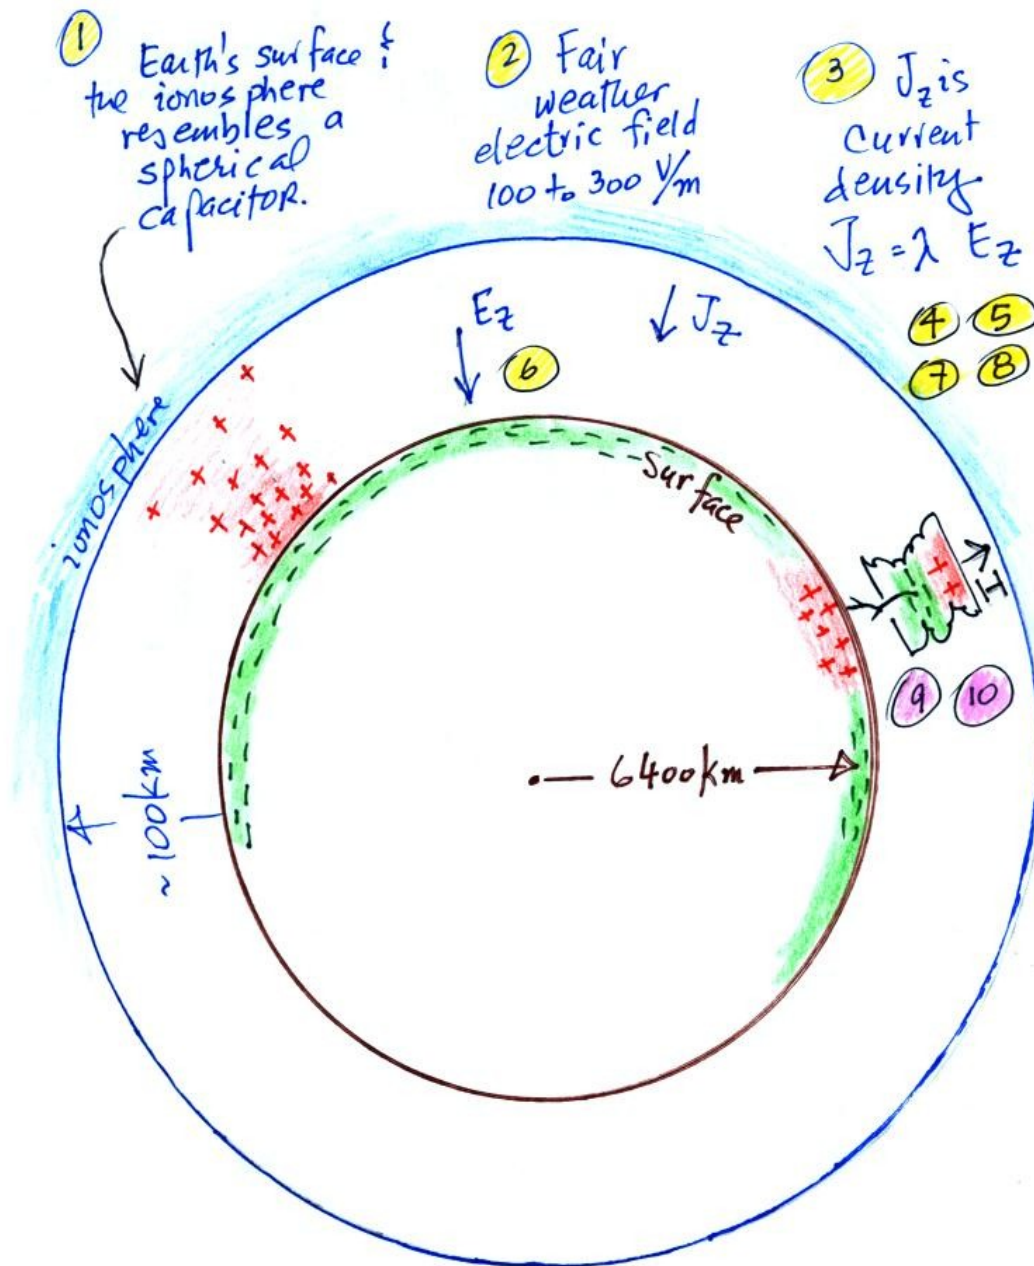 1
Earth's surface &
the ionosphere
resembles a
spherical
capacitor.
2 Fair
weather
electric field
100 to 300 V/m
3 Jz is
Current
density
Jz = λ Ez
4 5
7 8
Ez
Jz
6
ionosphere
+ + + + + + + + + + + + + + + + + + + +
surface
+ +
+ + +
+ +
+ +
I
9 10
6400km
~100km